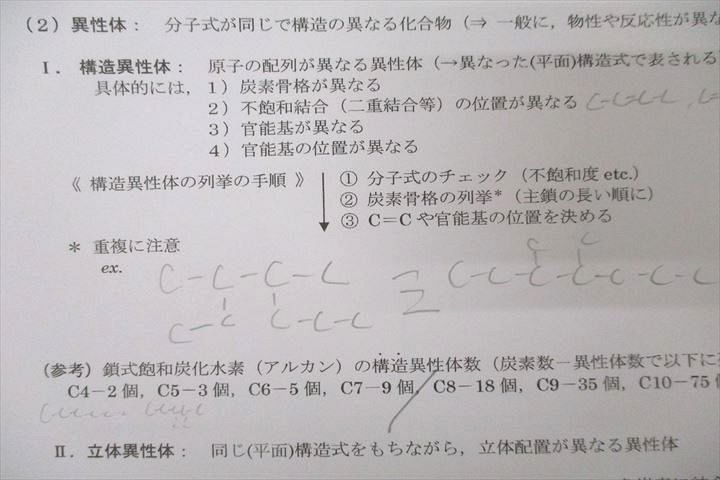 (2) 異性体： 分子式が同じで構造の異なる化合物 (⇒ 一般に，物性や反応性が異な
I． 構造異性体： 原子の配列が異なる異性体 (→異なった(平面)構造式で表される
具体的には， 1) 炭素骨格が異なる
2) 不飽和結合（二重結合等）の位置が異なる C-C=C-C ,
3) 官能基が異なる
4) 官能基の位置が異なる
《 構造異性体の列挙の手順 》 ① 分子式のチェック（不飽和度 etc.）
② 炭素骨格の列挙*（主鎖の長い順に）
③ C＝C や官能基の位置を決める
* 重複に注意
ex.
C C
C-C-C-C = C-C-C-C-C-C-C
C-C C-C-C
(参考) 鎖式飽和炭化水素（アルカン）の構造異性体数（炭素数－異性体数で以下に
C4－2 個，C5－3 個，C6－5 個，C7－9 個，C8－18 個，C9－35 個，C10－75
II．立体異性体： 同じ(平面)構造式をもちながら，立体配置が異なる異性体